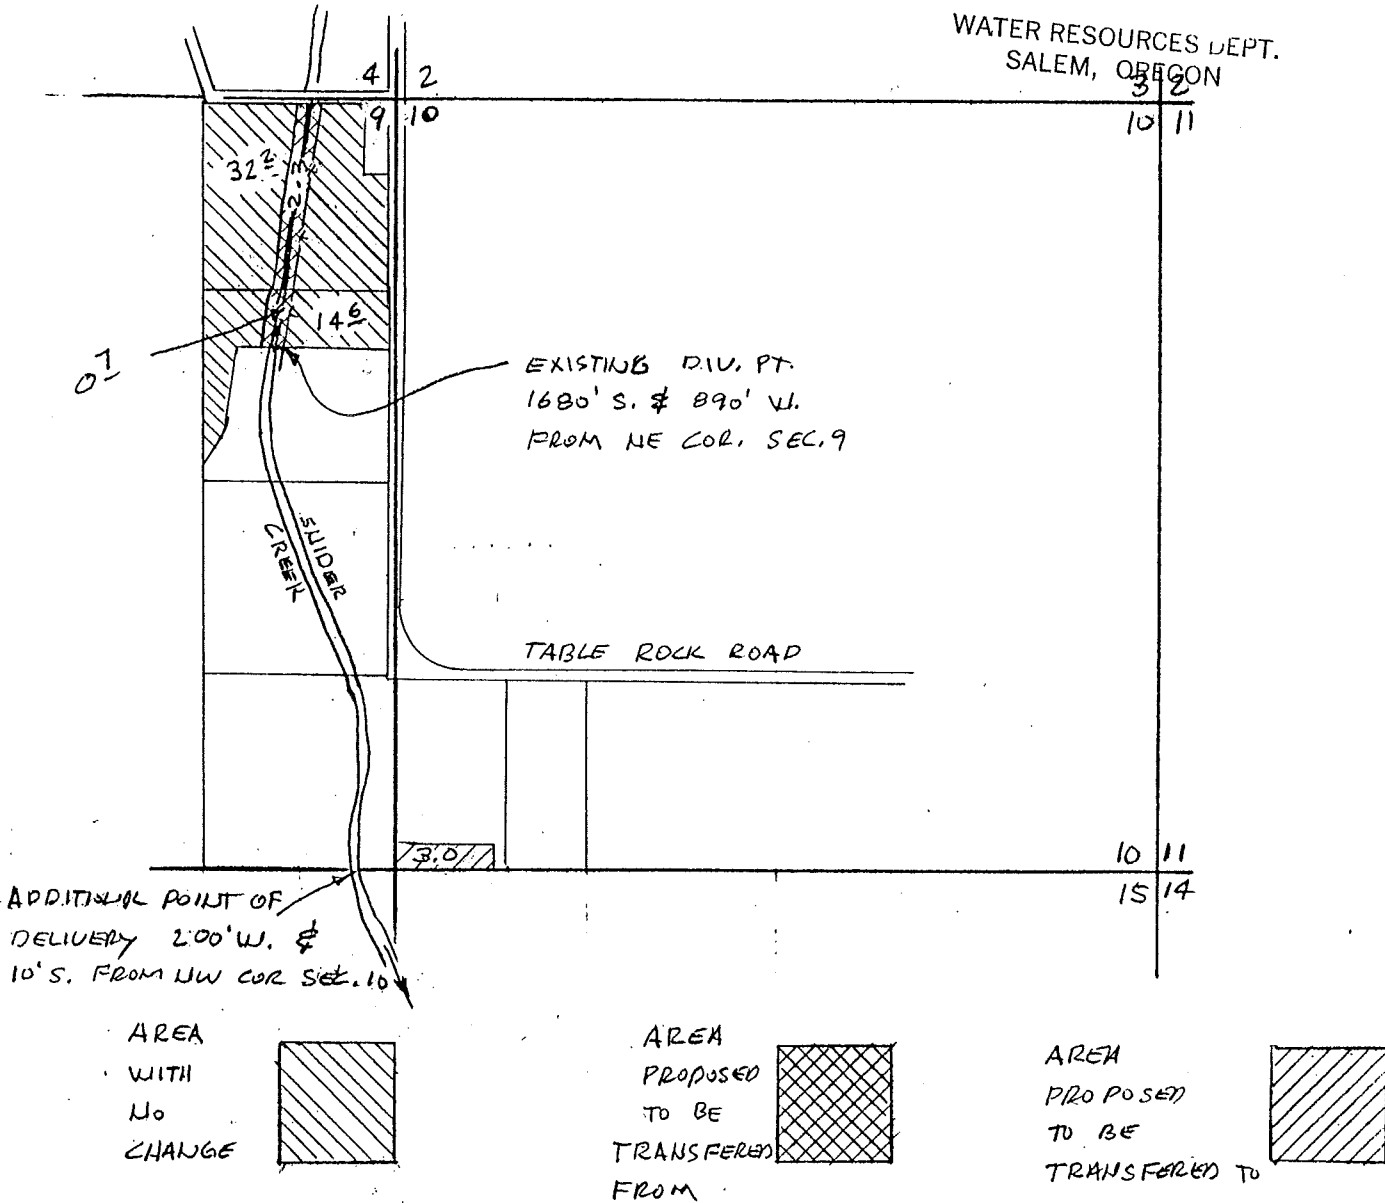 WATER RESOURCES DEPT.
SALEM, OREGON
4 2
9 10
3 2
10 11
32 2
2.3
14 6
0 7
EXISTING DIV. PT.
1680' S. & 890' W.
FROM NE COR. SEC. 9
SNIDER
CREEK
TABLE ROCK ROAD
3.0
10 11
15 14
ADDITIONAL POINT OF
DELIVERY 200' W. &
10' S. FROM NW COR SEC. 10
AREA
WITH
NO
CHANGE
AREA
PROPOSED
TO BE
TRANSFERED
FROM
AREA
PROPOSED
TO BE
TRANSFERED TO